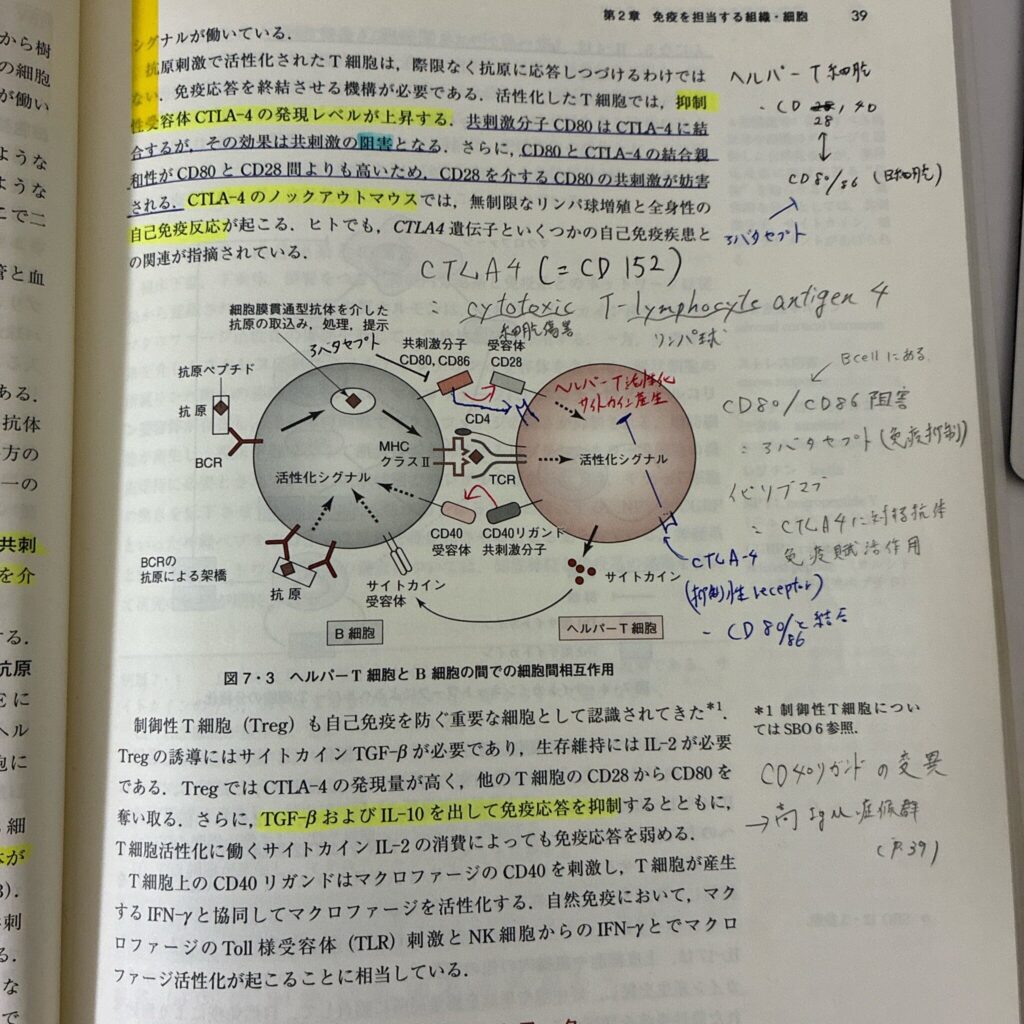 第2章 免疫を担当する組織・細胞 39
シグナルが働いている．
抗原刺激で活性化されたT細胞は，際限なく抗原に応答しつづけるわけでは
ない．免疫応答を終結させる機構が必要である．活性化したT細胞では，抑制
性受容体CTLA-4の発現レベルが上昇する．共刺激分子CD80はCTLA-4に結
合するが，その効果は共刺激の阻害となる．さらに，CD80とCTLA-4の結合親
和性がCD80とCD28間よりも高いため，CD28を介するCD80の共刺激が妨害
される．CTLA-4のノックアウトマウスでは，無制限なリンパ球増殖と全身性の
自己免疫反応が起こる．ヒトでも，CTLA4遺伝子といくつかの自己免疫疾患と
の関連が指摘されている．
ヘルパーT細胞
・CD 28, 40
CD80/86 (B細胞)
アバタセプト
CTLA4 (=CD152)
: cytotoxic T-lymphocyte antigen 4
細胞傷害 リンパ球
細胞膜貫通型抗体を介した
抗原の取込み，処理，提示
アバタセプト
共刺激分子
CD80, CD86
受容体
CD28
抗原ペプチド
抗原
BCR
CD4
MHC
クラスⅡ
TCR
活性化シグナル
ヘルパーT活性化
サイトカイン産生
活性化シグナル
CD40
受容体
CD40リガンド
共刺激分子
BCRの
抗原による架橋
抗原
サイトカイン
受容体
サイトカイン
B細胞
ヘルパーT細胞
CTLA-4
(抑制性receptor)
- CD80/86と結合
Bcellにある
CD80/CD86阻害
: アバタセプト(免疫抑制)
イピリブマブ
: CTLA4に対する抗体
免疫賦活作用
図7・3 ヘルパーT細胞とB細胞の間での細胞間相互作用
制御性T細胞（Treg）も自己免疫を防ぐ重要な細胞として認識されてきた*1．
Tregの誘導にはサイトカインTGF-βが必要であり，生存維持にはIL-2が必要
である．TregではCTLA-4の発現量が高く，他のT細胞のCD28からCD80を
奪い取る．さらに，TGF-βおよびIL-10を出して免疫応答を抑制するとともに，
T細胞活性化に働くサイトカインIL-2の消費によっても免疫応答を弱める．
T細胞上のCD40リガンドはマクロファージのCD40を刺激し，T細胞が産生
するIFN-γと協同してマクロファージを活性化する．自然免疫において，マク
ロファージのToll様受容体（TLR）刺激とNK細胞からのIFN-γとでマクロ
ファージ活性化が起こることに相当している．
*1 制御性T細胞につい
てはSBO 6参照．
CD40リガンドの変異
→高IgM症候群
(P.39)